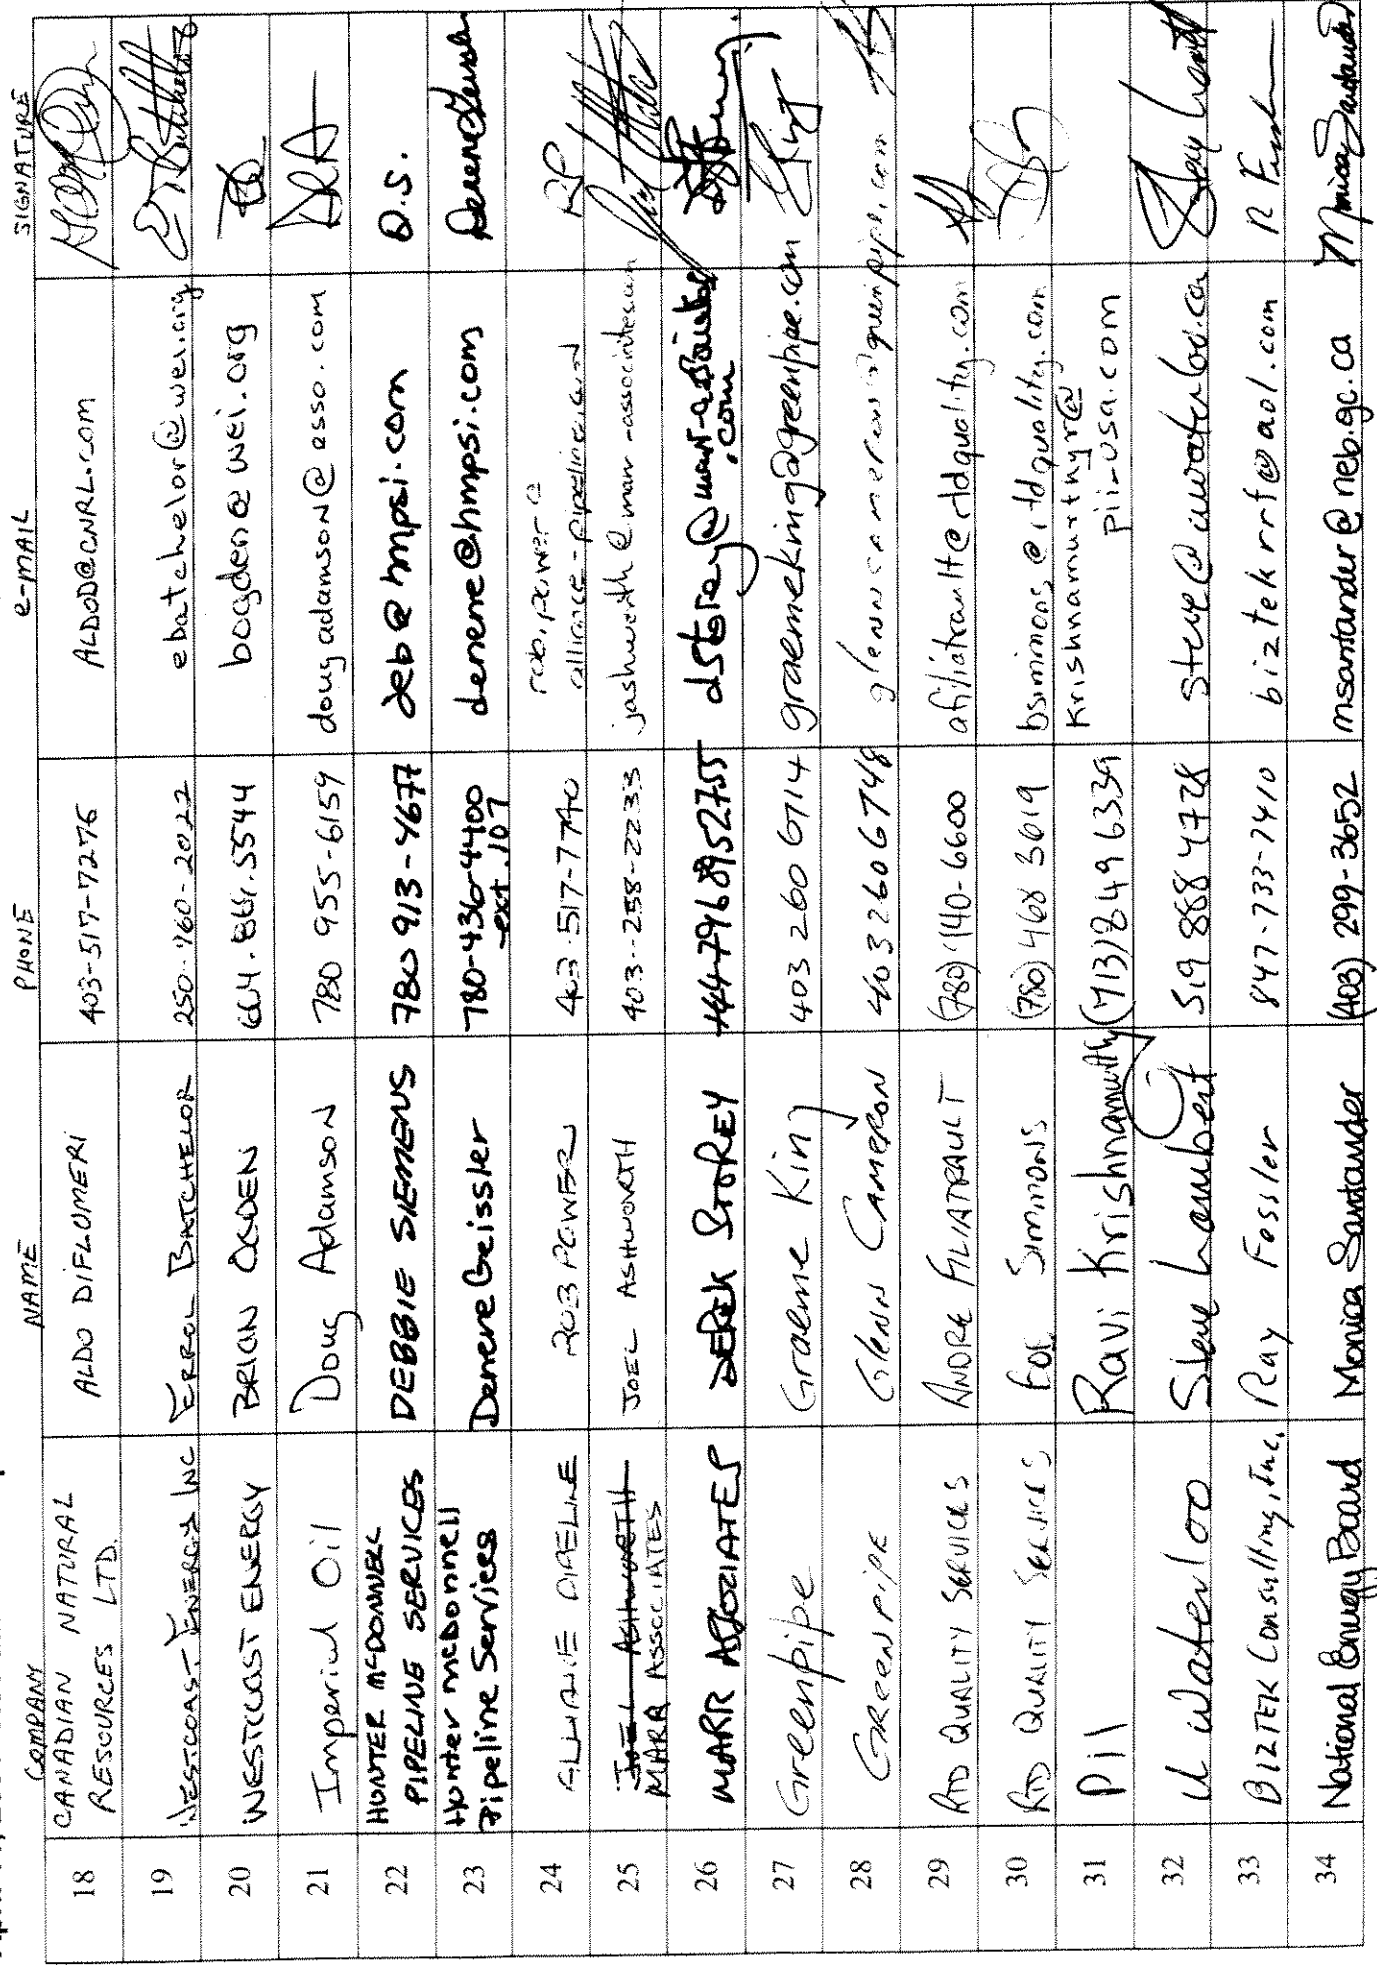 COMPANY NAME PHONE e-MAIL SIGNATURE
18 CANADIAN NATURAL RESOURCES LTD. ALDO DIFLUMERI 403-517-7276 ALDOD@CNRL.COM
19 WESTCOAST ENERGY INC ERROL BATCHELOR 250-960-2022 ebatchelor@wei.org
20 WESTCOAST ENERGY BRIAN OGDEN bogden@wei.org
21 Imperial Oil Doug Adamson 780 955-6159 doug adamson@esso.com DRA
22 HUNTER McDONNELL PIPELINE SERVICES DEBBIE SIEMENS 780 913-4677 deb@hmpsi.com D.S.
23 Hunter McDonnell Pipeline Services Denene Geissler 780-436-4400 ext. 107 denene@hmpsi.com Denene Geissler
24 ALLIANCE PIPELINE ROB POWER 403-517-7740 rob.power@ RP
25 JOEL ASHWORTH MARR ASSOCIATES JOEL ASHWORTH 403-258-2233
26 MARR ASSOCIATES DEREK STOREY 447968952755 dstorey@marr-associates.com
27 Greenpipe Graeme King 403 260 6714 graemeking@greenpipe.com
28 GREENPIPE GLENN CAMERON 403 260 6748
29 RTD QUALITY SERVICES ANDRE FILIATRAULT (780) 440-6600 afiliatrault@rtdquality.com
30 RTD QUALITY SERVICES BOB SIMMONS (780) 468 3619 bsimmons@rtdquality.com
31 PII Ravi Krishnamurthy (713) 849 6339 Krishnamurthyr@pii-usa.com
32 U Waterloo Steve Lambert 519 888 4728 steve@uwaterloo.ca
33 BIZTEK Consulting, Inc. Ray Fessler 847-733-7410 biztekrrf@aol.com
34 National Energy Board Monica Santander (403) 299-3652 msantander@neb.gc.ca Monica Santander